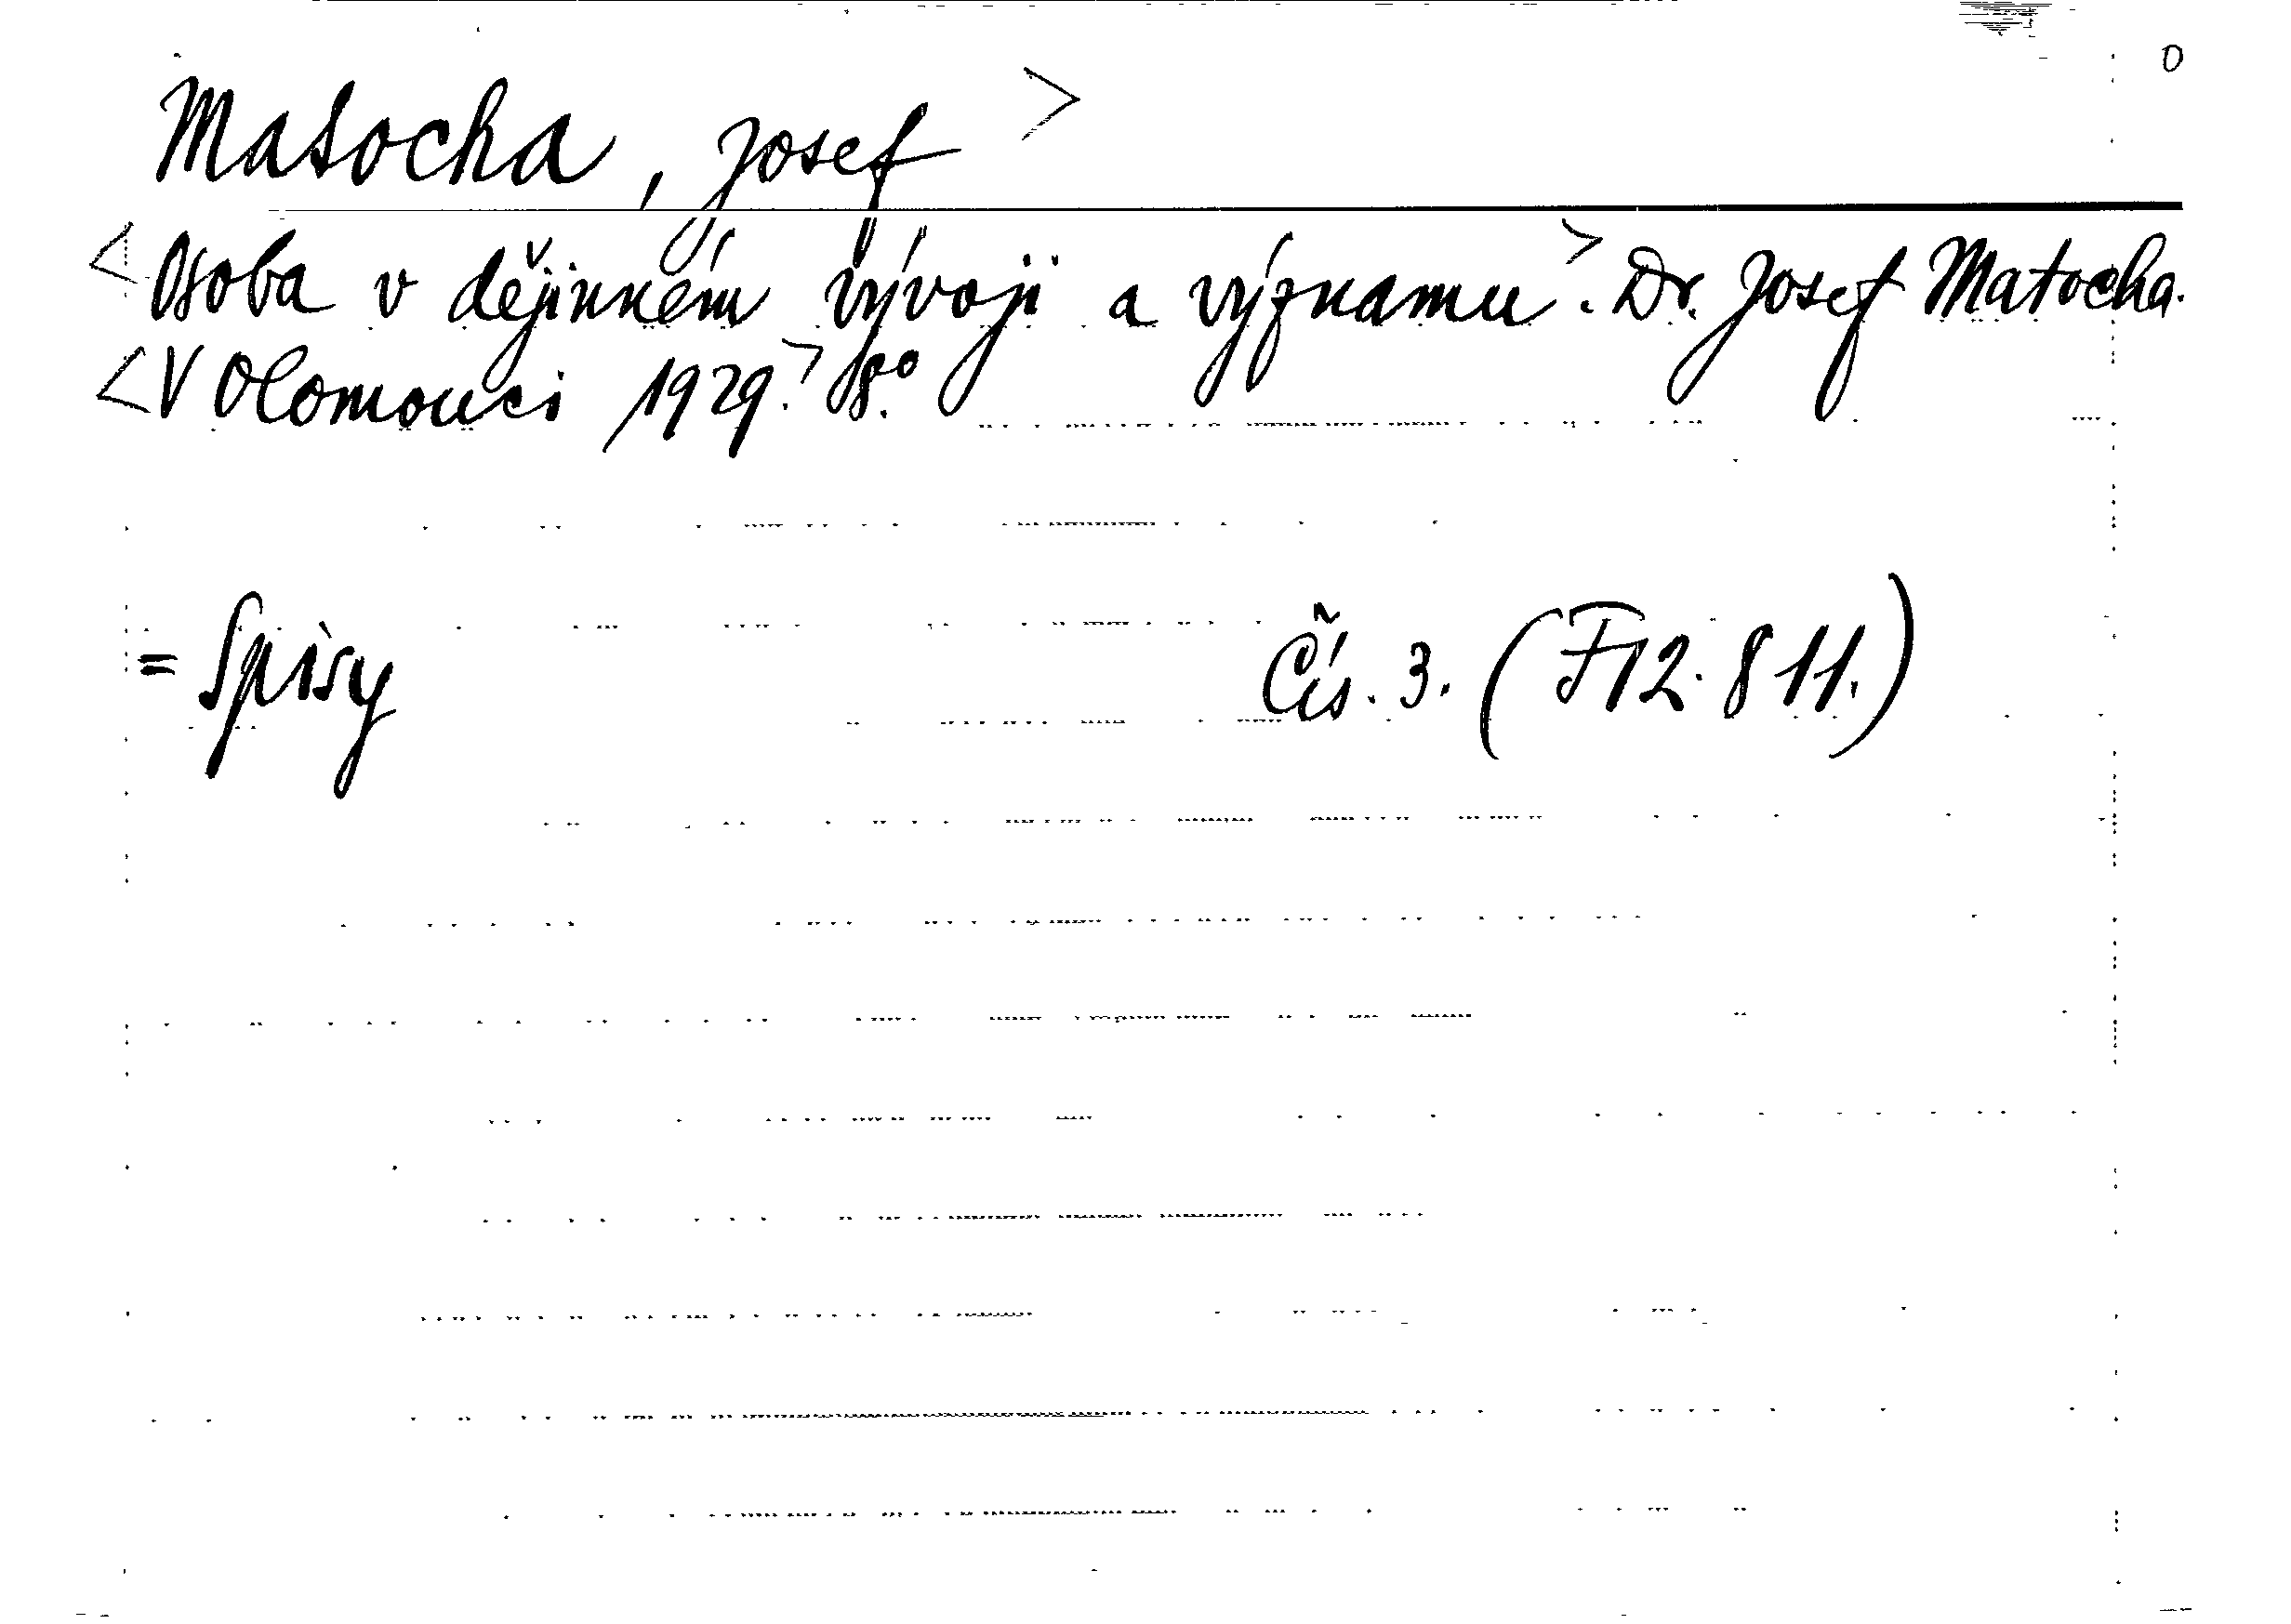 Matocha, Josef >
<Osoba v dějinném vývoji a významu>. Dr. Josef Matocha.
<V Olomouci 1929.> 8.º
= Spisy Čís. 3. (F 12.811.)